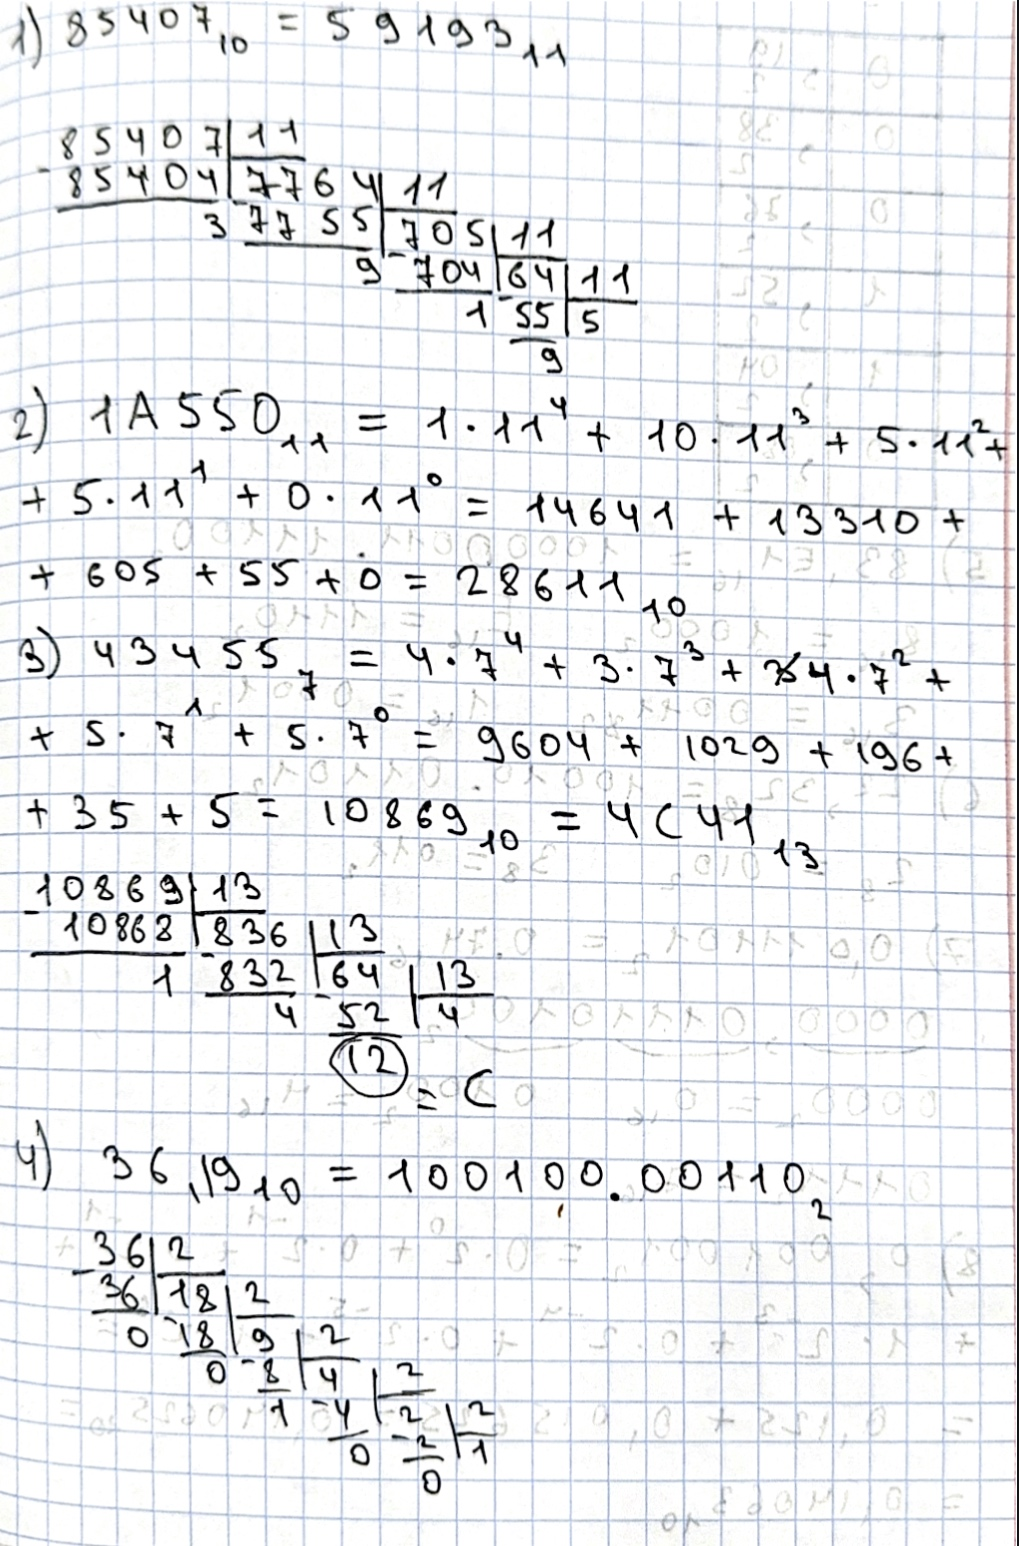 1) 85407₁₀ = 59193₁₁
85407 | 11
- 85404 | 7764 | 11
3 - 7755 | 705 | 11
9 - 704 | 64 | 11
1 - 55 | 5
9
2) 1A550₁₁ = 1·11⁴ + 10·11³ + 5·11² +
+ 5·11¹ + 0·11⁰ = 14641 + 13310 +
+ 605 + 55 + 0 = 28611₁₀
3) 43455₇ = 4·7⁴ + 3·7³ + 4·7² +
+ 5·7¹ + 5·7⁰ = 9604 + 1029 + 196 +
+ 35 + 5 = 10869₁₀ = 4C41₁₃
10869 | 13
- 10868 | 836 | 13
1 - 832 | 64 | 13
4 - 52 | 4
12 = C
4) 36,19₁₀ = 100100.00110₂
- 36 | 2
36 | 18 | 2
0 - 18 | 9 | 2
0 - 8 | 4 | 2
1 - 4 | 2 | 2
0 - 2 | 1
0